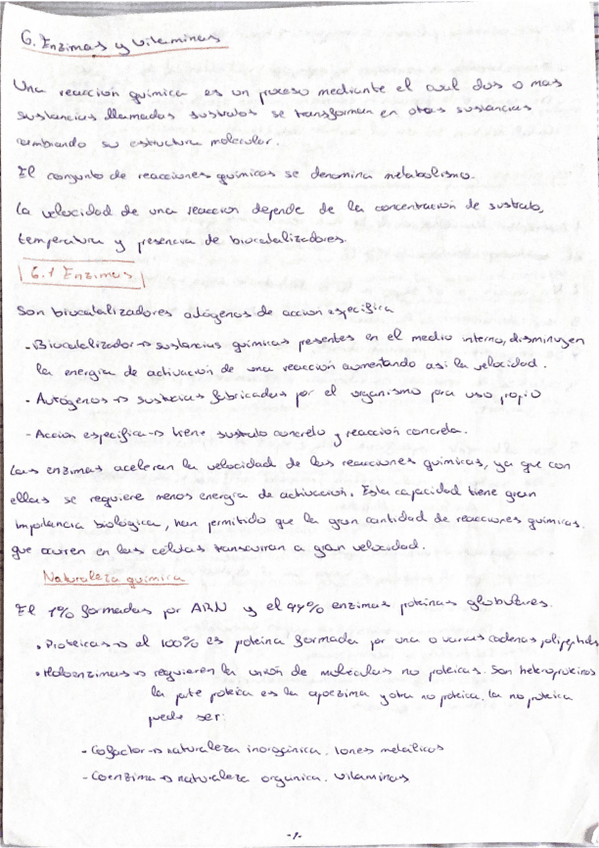 6. Enzimas y vitaminas
Una reacción química es un proceso mediante el cual dos o mas
sustancias llamadas sustratos se transforman en otras sustancias
cambiando su estructura molecular.
El conjunto de reacciones químicas se denomina metabolismo.
La velocidad de una reaccion depende de la concentración de sustrato,
temperatura y presencia de biocatalizadores.
6.1 Enzimas
Son biocatalizadores autógenos de accion especifica
- Biocatalizador → sustancias químicas presentes en el medio interno, disminuyen
la energía de activación de una reacción aumentando asi la velocidad.
- Autógenos → sustancias fabricadas por el organismo para uso propio
- Accion especifica → tiene sustrato concreto y reacción concreta.
Las enzimas aceleran la velocidad de las reacciones químicas, ya que con
ellas se requiere menos energía de activación. Esta capacidad tiene gran
importancia biologica, han permitido que la gran cantidad de reacciones químicas
que ocurren en las células transcurran a gran velocidad.
Naturaleza química
El 1% formadas por ARN y el 99% enzimas proteinas globulares.
• Proteicas → el 100% es proteina formada por una o varias cadenas polipeptidi
• Holoenzimas → requieren la unión de moléculas no proteicas. Son heteroproteinas
la parte proteica es la apoenzima y otra no proteica. La no proteica
puede ser:
- Cofactor → naturaleza inorgánica. Iones metálicos
- Coenzima → naturaleza orgánica. Vitaminas
-1-